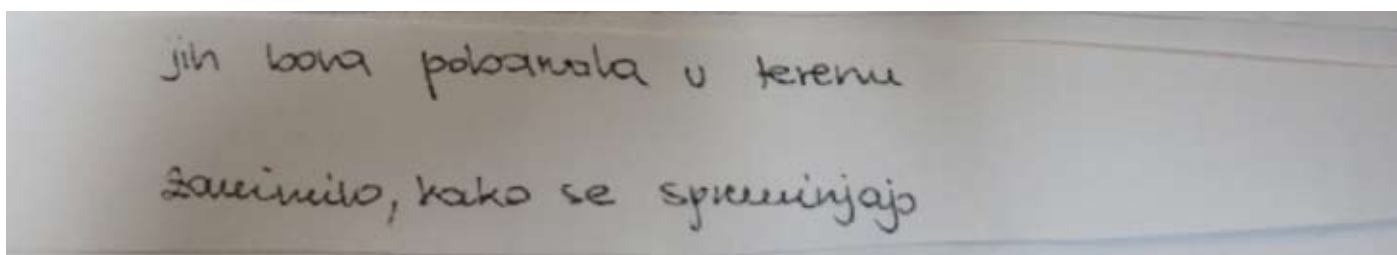 jih bova pobarvala v terenu
zanimivo, kako se spreminjajo